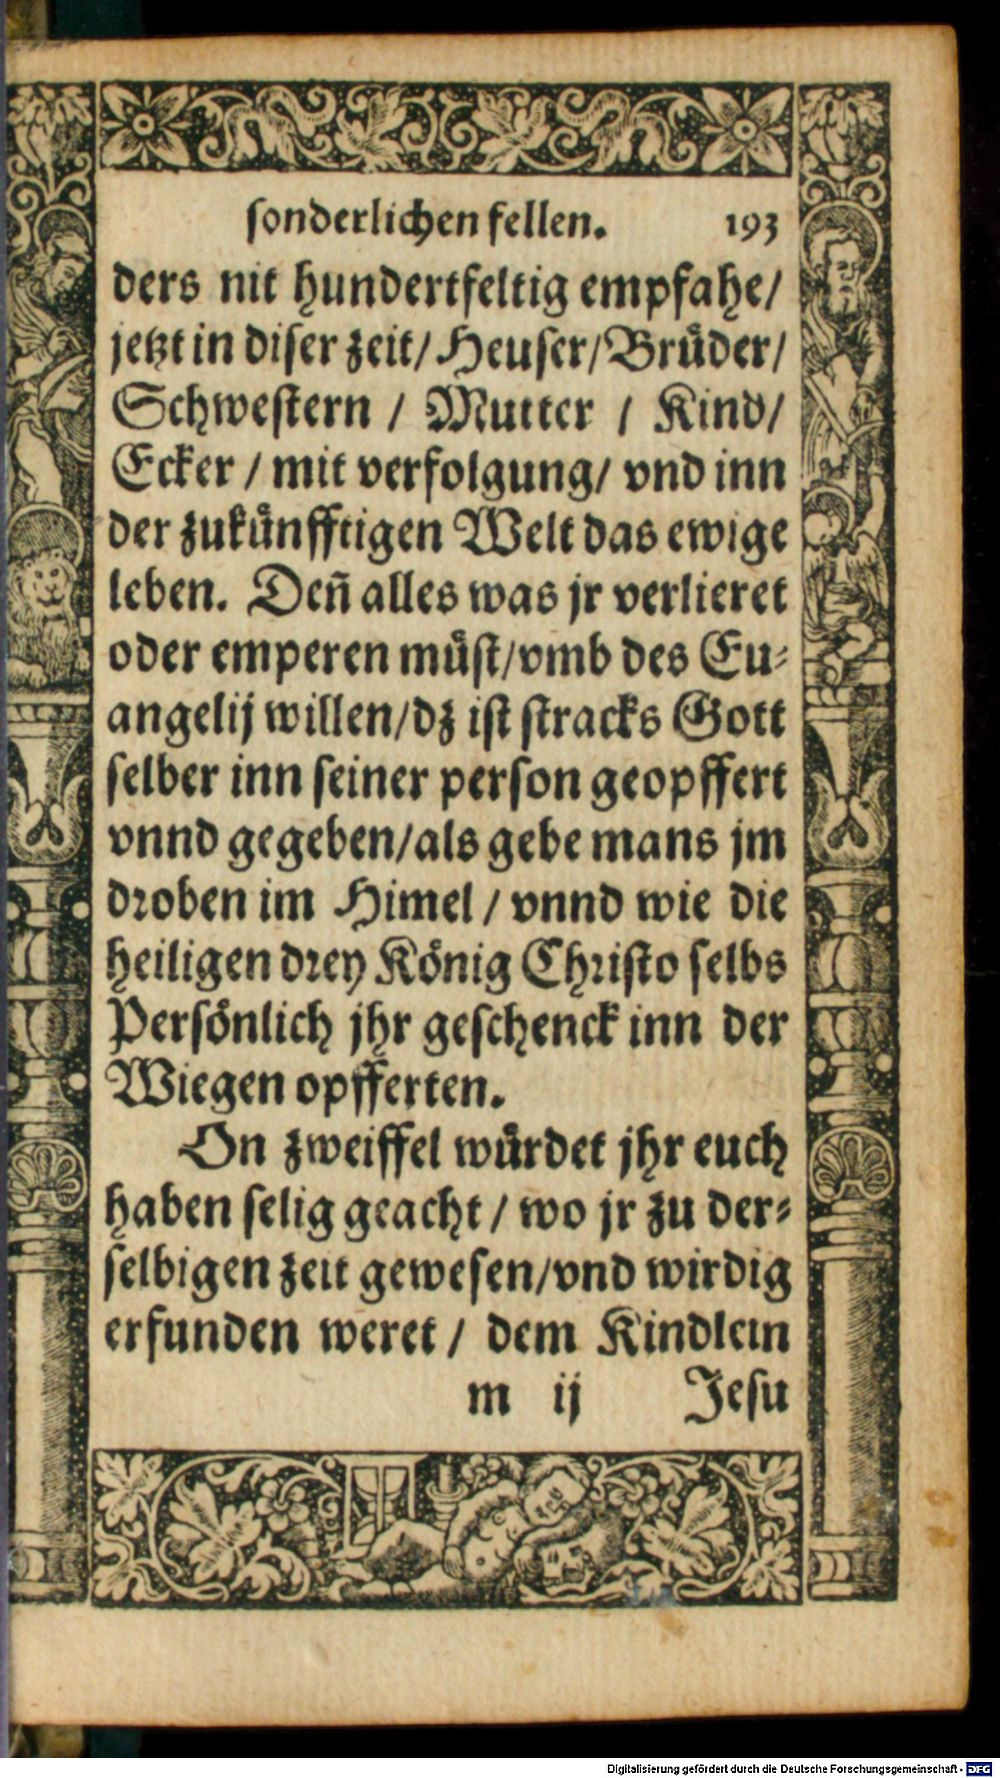 sonderlichen fellen. 193
ders nit hundertfeltig empfahe/
jetzt in diser zeit/ Heuser/ Bruͤder/
Schwestern / Mutter / Kind/
Ecker / mit verfolgung/ vnd inn
der zukuͤnfftigen Welt das ewige
leben. Den̄ alles was jr verlieret
oder emperen muͤst/ vmb des Eu⸗
angelij willen/ dz ist stracks Gott
selber inn seiner person geopffert
vnnd gegeben/ als gebe mans jm
droben im Himel / vnnd wie die
heiligen drey Koͤnig Christo selbs
Persoͤnlich jhr geschenck inn der
Wiegen opfferten.
On zweiffel wuͤrdet jhr euch
haben selig geacht / wo jr zu der⸗
selbigen zeit gewesen/ vnd wirdig
erfunden weret / dem Kindlein
m ij Jesu
Digitalisierung gefördert durch die Deutsche Forschungsgemeinschaft - DFG